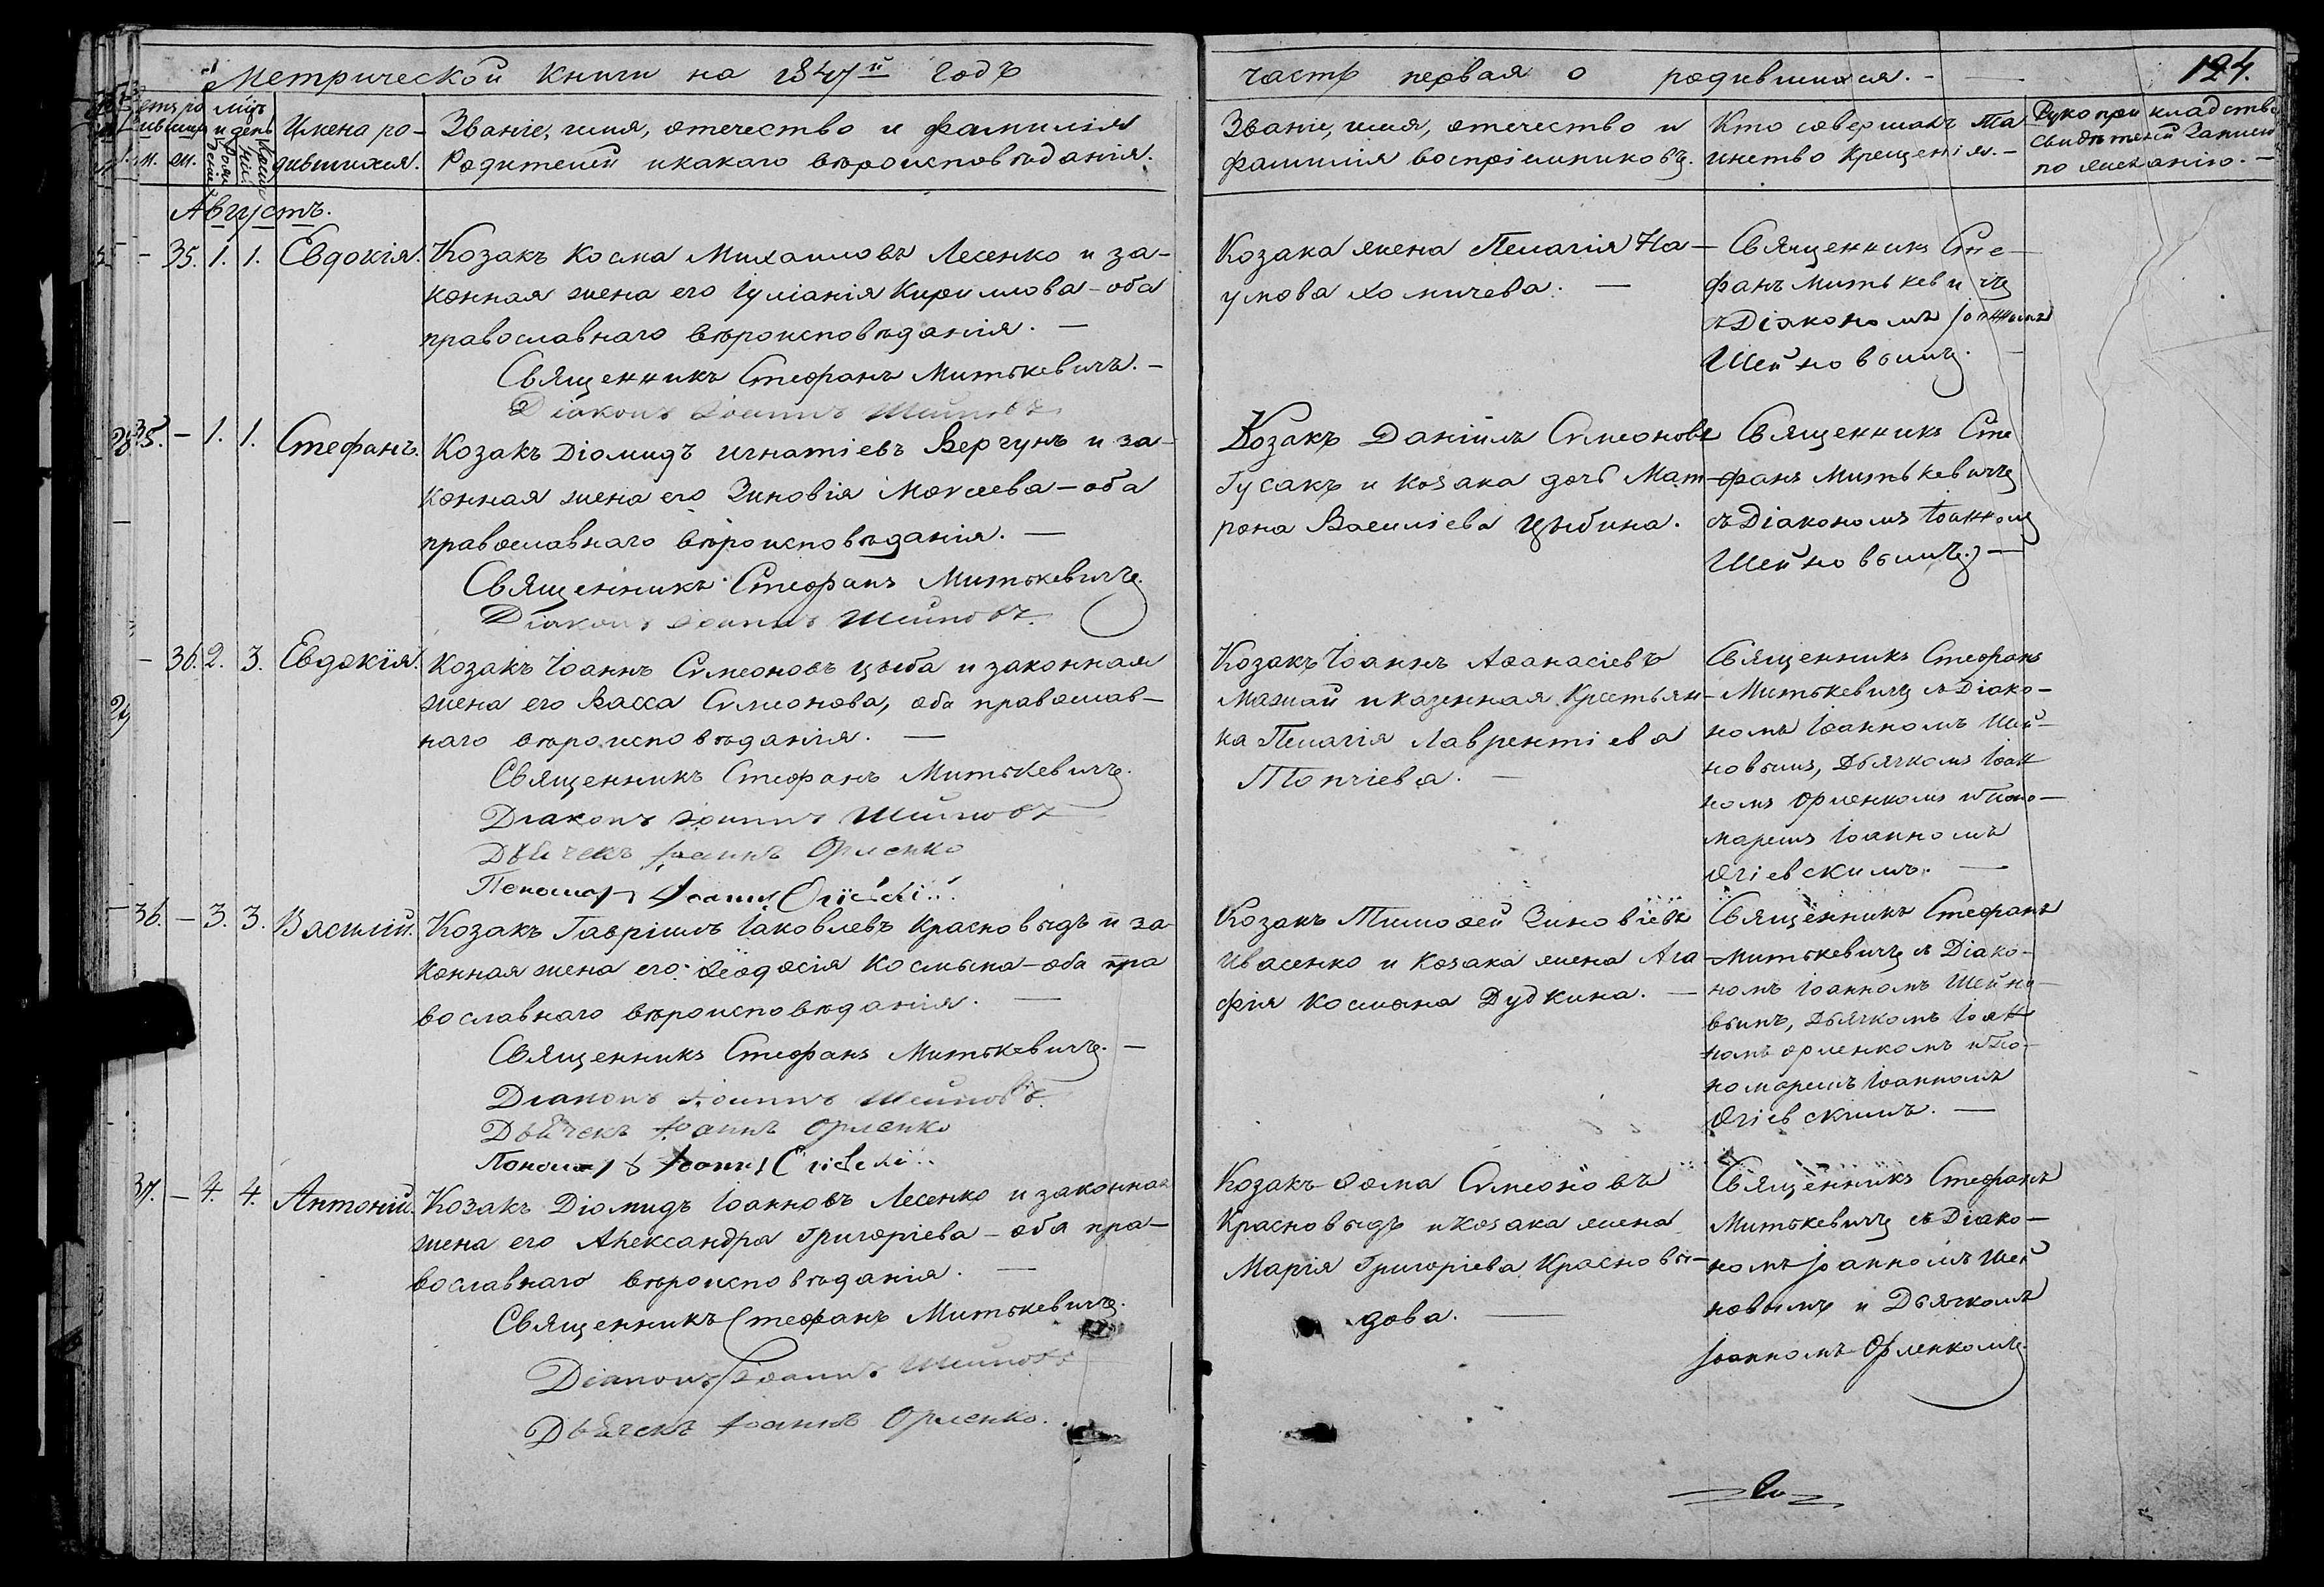 Метрической книги на 1847й годъ
часть первая о родившихся.
124.
Имена ро-
дившихся.
Званіе, имя, отечество и фамилія
Родителей и какаго вѣроисповѣданія.
Званіе, имя, отечество и
фамилія воспріемниковъ.
Кто совершалъ Та
инство Крещенія.
Рукоприкладство
Свидѣтелей Записи
по желанію.
Августъ.
- 35. 1. 1. Евдокія.
Козакъ Косма Михаиловъ Лесенко и за-
конная жена его Іуліанія Кирилова - оба
православнаго вѣроисповѣданія.
Священникъ Стефанъ Митькевичъ.
Діаконъ Іоаннъ Шейновъ
Козака жена Пелагія На-
умова Хомичева.
Священникъ Сте-
фанъ Митькевичъ
съ Діакономъ Іоанномъ
Шейновымъ.
28 35. - 1. 1. Стефанъ.
Козакъ Діомидъ Игнатіевъ Вергунъ и за-
конная жена его Зиновія Моисеева - оба
православнаго вѣроисповѣданія.
Священникъ Стефанъ Митькевичъ.
Діаконъ Іоаннъ Шейновъ.
Козакъ Даніилъ Симеоновъ
Гусакъ и козака дочь Мат-
рона Василіева Цыбина.
Священникъ Сте
фанъ Митькевичъ
съ Діакономъ Іоанномъ
Шейновымъ.
29
- 36. 2. 3. Евдокія.
Козакъ Іоаннъ Симеоновъ Цыба и законная
жена его Васса Симеонова, оба православ-
наго вѣроисповѣданія.
Священникъ Стефанъ Митькевичъ.
Діаконъ Іоаннъ Шейновъ
Дьячекъ Іоаннъ Орленко
Пономарь Іоаннъ
Козакъ Іоаннъ Аѳанасіевъ
и казенная Крестьян-
ка Пелагія Лаврентіева
Топчіева.
Священникъ Стефанъ
Митькевичъ съ Діако-
номъ Іоанномъ Шей-
новымъ, Дьячкомъ Іоан
номъ Орленкомъ и Поно-
маремъ Іоанномъ
Огіевскимъ.
36. - 3. 3. Василій.
Козакъ Гавріилъ Іаковлевъ Красновыдъ и за-
конная жена его Ѳеодосія Космына - оба пра
вославнаго вѣроисповѣданія.
Священникъ Стефанъ Митькевичъ.
Діаконъ Іоаннъ Шейновъ.
Дьячекъ Іоаннъ Орленко
Пономарь Іоаннъ
Козакъ Тимоѳей Зиновіевъ
Ивасенко и Козака жена Ага
фія Космина Дудкина.
Священникъ Стефанъ
Митькевичъ съ Діако-
номъ Іоанномъ Шейно-
вымъ, Дьячкомъ Іоан
номъ Орленкомъ и По-
номаремъ Іоанномъ
Огіевскимъ.
37. - 4. 4. Антоній.
Козакъ Діомидъ Іоанновъ Лесенко и законная
жена его Александра Григоріева - оба пра-
вославнаго вѣроисповѣданія.
Священникъ Стефанъ Митькевичъ.
Діаконъ Іоаннъ Шейновъ
Дьячекъ Іоаннъ Орленко.
Козакъ Ѳома Симеоновъ
Красновыдъ и козака жена
Марія Григоріева Красновы-
дова.
Священникъ Стефанъ
Митькевичъ съ Діако-
номъ Іоанномъ Шей
новымъ и Дьячкомъ
Іоанномъ Орленкомъ.